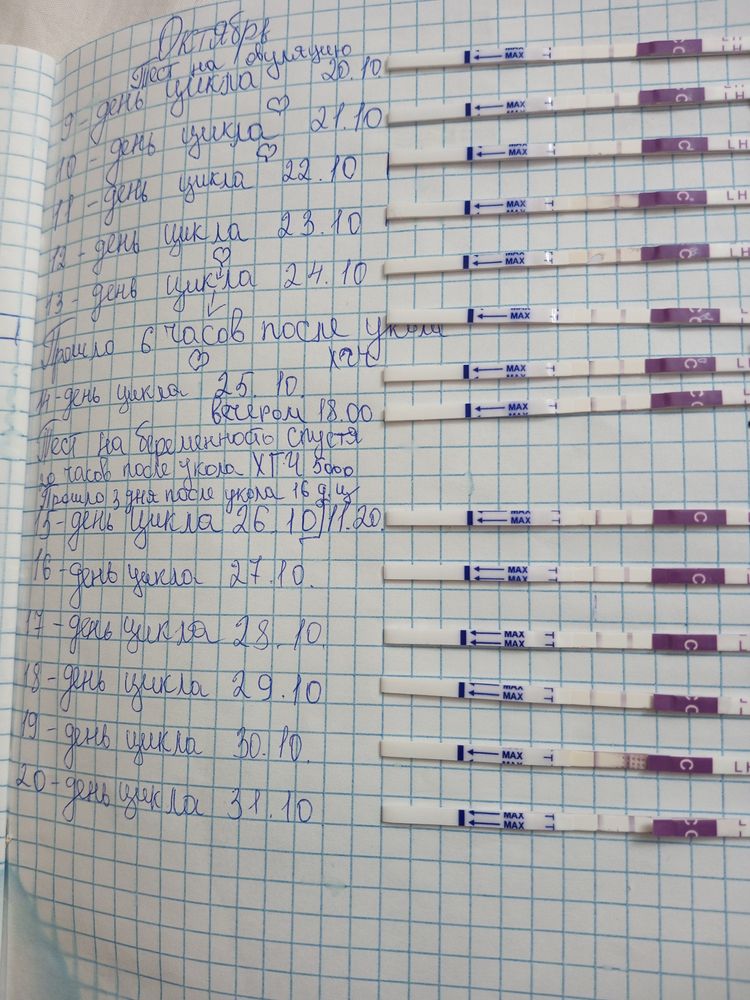 Октябрь
Тест на овуляцию
9-день цикла 20.10
10-день цикла 21.10
11-день цикла 22.10
12-день цикла 23.10
13-день цикла 24.10
Прошло 6 часов после укола
ХГЧ
14-день цикла 25.10.
вечером 18.00
Тест на беременность спустя
часов после укола ХГЧ 5000
Прошло 3 дня после укола 16 д.ц
15-день цикла 26.10 11.20.
16-день цикла 27.10.
17-день цикла 28.10.
18-день цикла 29.10
19-день цикла 30.10.
20-день цикла 31.10
MAX
MAX
MAX
C
LH
MAX
C
LH
MAX
MAX
C
LH
MAX
C
MAX
MAX
C
MAX
MAX
C
MAX
MAX
C
MAX
MAX
C
MAX
MAX
C
MAX
MAX
C
MAX
C
LH
MAX
MAX
C